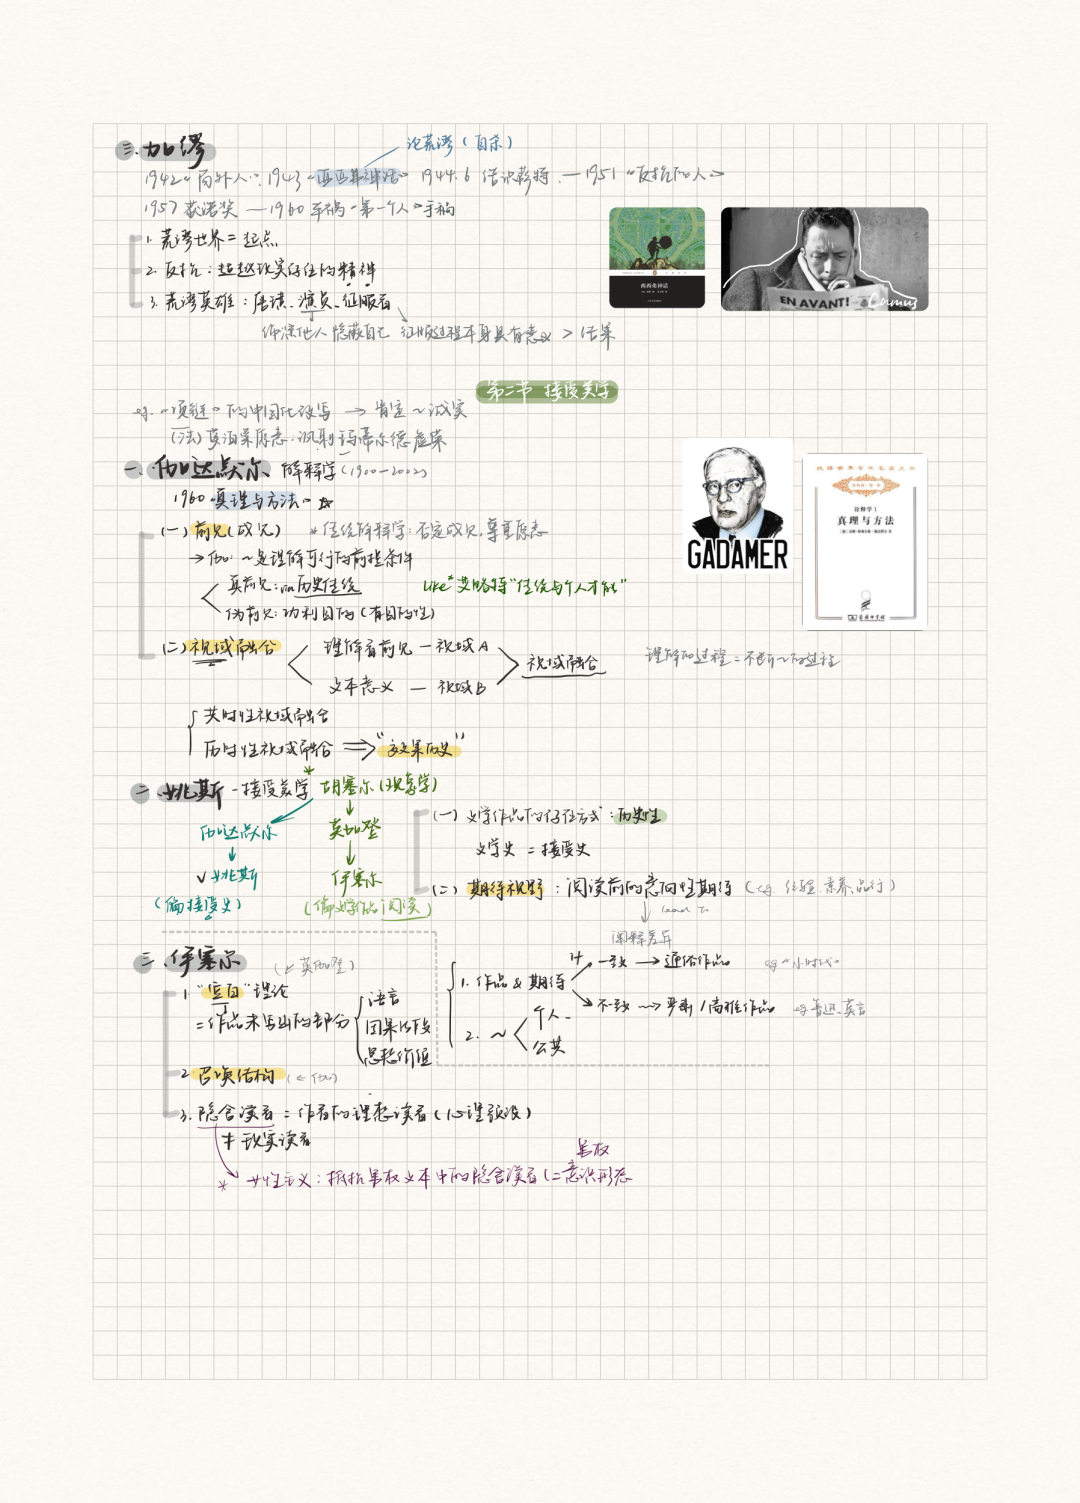 三.加缪
论荒谬(自杀)
1942《局外人》.1943《西西弗神话》 1944.6 结识萨特.—1951《反抗的人》
1957 获诺奖 — 1960 车祸《第一个人》手稿
1. 荒谬世界 = 起点.
2. 反抗:超越现实存在的精神
3. 荒谬英雄:唐璜、演员、征服者
饰演他人 隐蔽自己 征服过程本身具有意义 > 结果
西西弗神话
EN AVANT!
Camus
第二节 接受美学
eg. 《项链》的中国化改写 → 肯定~诚实
(法)莫泊桑原意:讽刺玛蒂尔德虚荣
一、伽达默尔 解释学(1900—2002)
1960《真理与方法》☆
(一)前见(成见) *传统解释学:否定成见,尊重原意
→ 伽:~是理解可行的前提条件
真前见:历史传统
Like* 艾略特"传统与个人才能"
伪前见:功利目的(有目的性)
(二)视域融合
理解者前见 — 视域A
文本意义 — 视域B
视域融合
理解的过程 = 不断~的过程
共时性视域融合
历时性视域融合 ⇒ "效果历史"
GADAMER
汉译世界学术名著丛书
诠释学 I
真理与方法
商务印书馆
二、姚斯 - 接受美学* 胡塞尔(现象学)
伽达默尔
↓
∨ 姚斯
(偏接受史)
↓
英加登
↓
伊塞尔
(偏文学作品阅读)
(一)文学作品的存在方式:历史性
文学史 = 接受史
(二)期待视野:阅读前的意向性期待(eg. 经验、素养、品行)
↓ lead to
阐释差异
1. 作品 & 期待
一致 → 通俗作品 eg《小时代》
不一致 → 严肃/高雅作品 eg 鲁迅、莫言
2. ~
个人.
公共
三、伊塞尔 (← 英加登)
1 "空白"理论
=作品未写出的部分
语言
因果情段
思想价值
2 召唤结构
3. 隐含读者 = 作者的理想读者(心理预设)
≠ 现实读者
* 女性主义:抵抗男权文本中的隐含读者(=男权意识形态